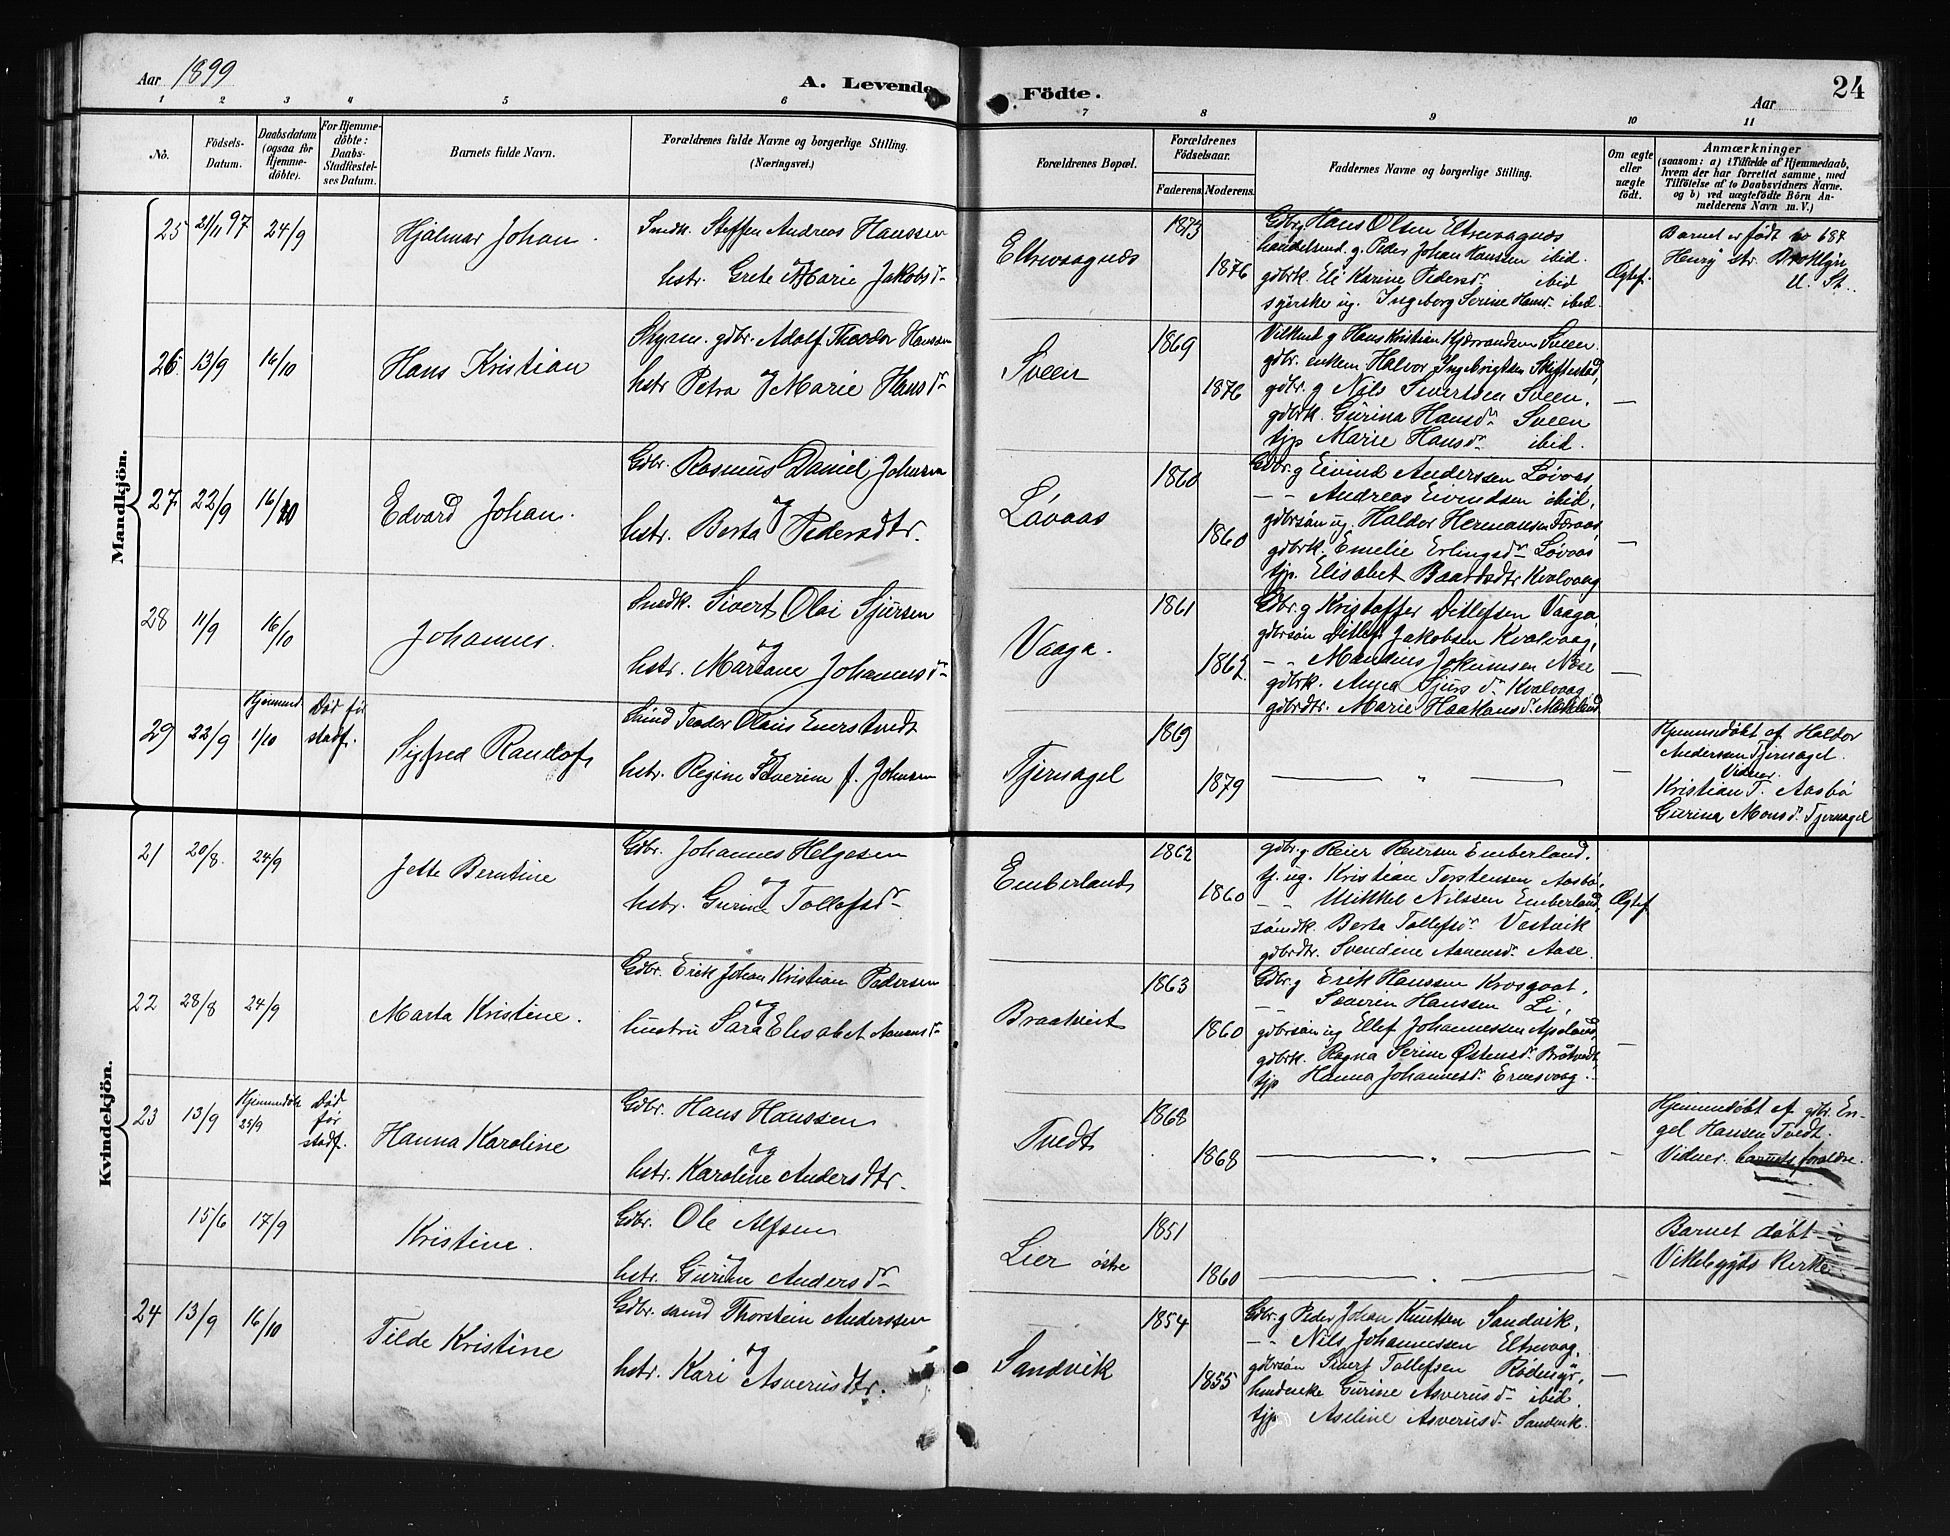 Aar 1899
A. Levende Födte.
Aar
24
1 2 3 4 5 6 7 8 9 10 11
No.
Födsels-Datum.
Daabsdatum (ogsaa for Hjemme-döbte).
For Hjemme-döbte: Daabs-Stadfæstel-ses Datum.
Barnets fulde Navn.
Forældrenes fulde Navne og borgerlige Stilling. (Næringsvei.)
Forældrenes Bopæl.
Forældrenes Födselsaar.
Faderens. Moderens.
Faddernes Navne og borgerlige Stilling.
Om ægte eller uægte födt.
Anmærkninger
(saasom: a) i Tilfælde af Hjemmedaab,
hvem der har forrettet samme, med
Tilföielse af to Daabsvidners Navne.
og b) ved uægtefödte Börn An-
melderens Navn m. V.)
Mandkjön.
25 21/11 97 24/9
Hjalmar Johan.
Smdk. Steffen Andreas Hanssen
og
hstr. Grete Marie Jakobsdr
Eltrevaagnæs
1873
1876
Gbr. g Hans Olsen Eltrevaagnæs
handelsmd. g. Peder Johan Hansen ibid.
gdbrk. Eli Karine Pedersdr ibid
syerske ug. Ingeborg Serine Hansdr ibid.
Ægtef.
Barnet er født no 687
Henry str. Broklyn
U. St.
26 13/9 14/10
Hans Kristian
gdbr. Adolf Theodor Hanssen
og
hstr Petra Marie Hansdr
Sveen
1869
1876
g Hans Kristian Sveen.
gdbr. enkem Halvor Ingebrigtsen
gdbr. g Nils Sivertsen Sveen.
gdbrk. Gurina Hansdr Sveen
tjp Marie Hansdr ibid.
—
27 22/9 16/10
Edvard Johan.
Gdbr. Rasmus Daniel Johnsen
og
hstr. Berta Pedersdtr.
Løvaas
1860
1860
Gdbr. g Eivind Anderssen Løvaas
— - Andreas Eivindsen ibid.
gdbrsøn ug. Haldor Hermansen Færaas
gdbrk. Emelie Erlingsdr Løvaas
tjp. Elisabet Baardsdtr Kvalvaag
—
28 11/9 16/10
Johannes.
Smdk. Sivert Olai Sjursen
og
hstr. Mariane Johannesdr
Vaaga.
1861
1862
Gdbr. g Kristoffer Ditlefsen Vaaga,
gdbrsøn Ditlef Jakobsen Kvalvaag,
— - Mandius Jokumsen
gdbrk. Anna Sjursdr Kvalvaag
gdbrdtr. Marie Haakonsdr
—
29 22/9 1/10
Død før stadf.
Sigfred Randolf
Teodor Olaus Enerstvedt
og
hstr. Regine Severine f. Johnsen
Tjernagel
1869
1879
— " —
—
Hjemmedøbt af Haldor
Andersen Tjernagel.
Vidner.
Kristian T. Aasbø
Gurina Monsdr Tjernagel
Kvindekjön.
21 20/8. 24/9
Jette Berntine
Gdbr. Johannes Helgesen
og
hstr. Gurine Tollefsdr
Emberland
1862
1860
gdbr. g Reier Reiersen Emberland.
tj. ug. Kristian Torstensen Aasbø,
— - Mikkel Nilssen Emberland,
Berta Tollefsdr Vestvik
gdbrdtr. Svendine Aamensdr Aase.
Ægtef.
22 28/8 24/9
Marta Kristine.
Gdbr. Erik Johan Kristian Pedersen
og
hustru Sara Elisabet
Braatveit
1863
1860
Gdbr. g Erik Hanssen
— Severin Hanssen Li,
gdbrsøn ug Ellef Johannessen Apeland,
gdbrk. Ragna Serine Østensdr Bråtvedt,
tjp Hanna Johannesdr
—
23 13/9 Hjemmedøbt 25/9
Død før stadf.
Hanna Karoline
Gdbr. Hans Hanssen
og
hstr. Karoline Andersdtr.
Tvedt
1868
1868
— " —
—
Hjemmedøbt af gdbr. En-
gel Hansen Tvedt.
Vidner. barnets forældre.
15/6 17/9
Kristine.
Gdbr. Ole Alfsen
og
hstr. Gurine Andersdr
Lier østre
1851
1860
— " —
—
Barnet døbt i
Vikebygds Kirke
24 13/9 16/10
Tilde Kristine
Gdbr. smd Thorstein Anderssen
og
hstr. Kari Asverusdtr.
Sandvik
1854
1855
Gdbr. g Peder Johan Knutsen Sandvik,
— - Nils Johannessen Eltrevaag.
gdbrsøn Sivert Tollefsen
Gurine Asverusdr ibid,
tjp Aseline Asverusdr Sandvik.
—